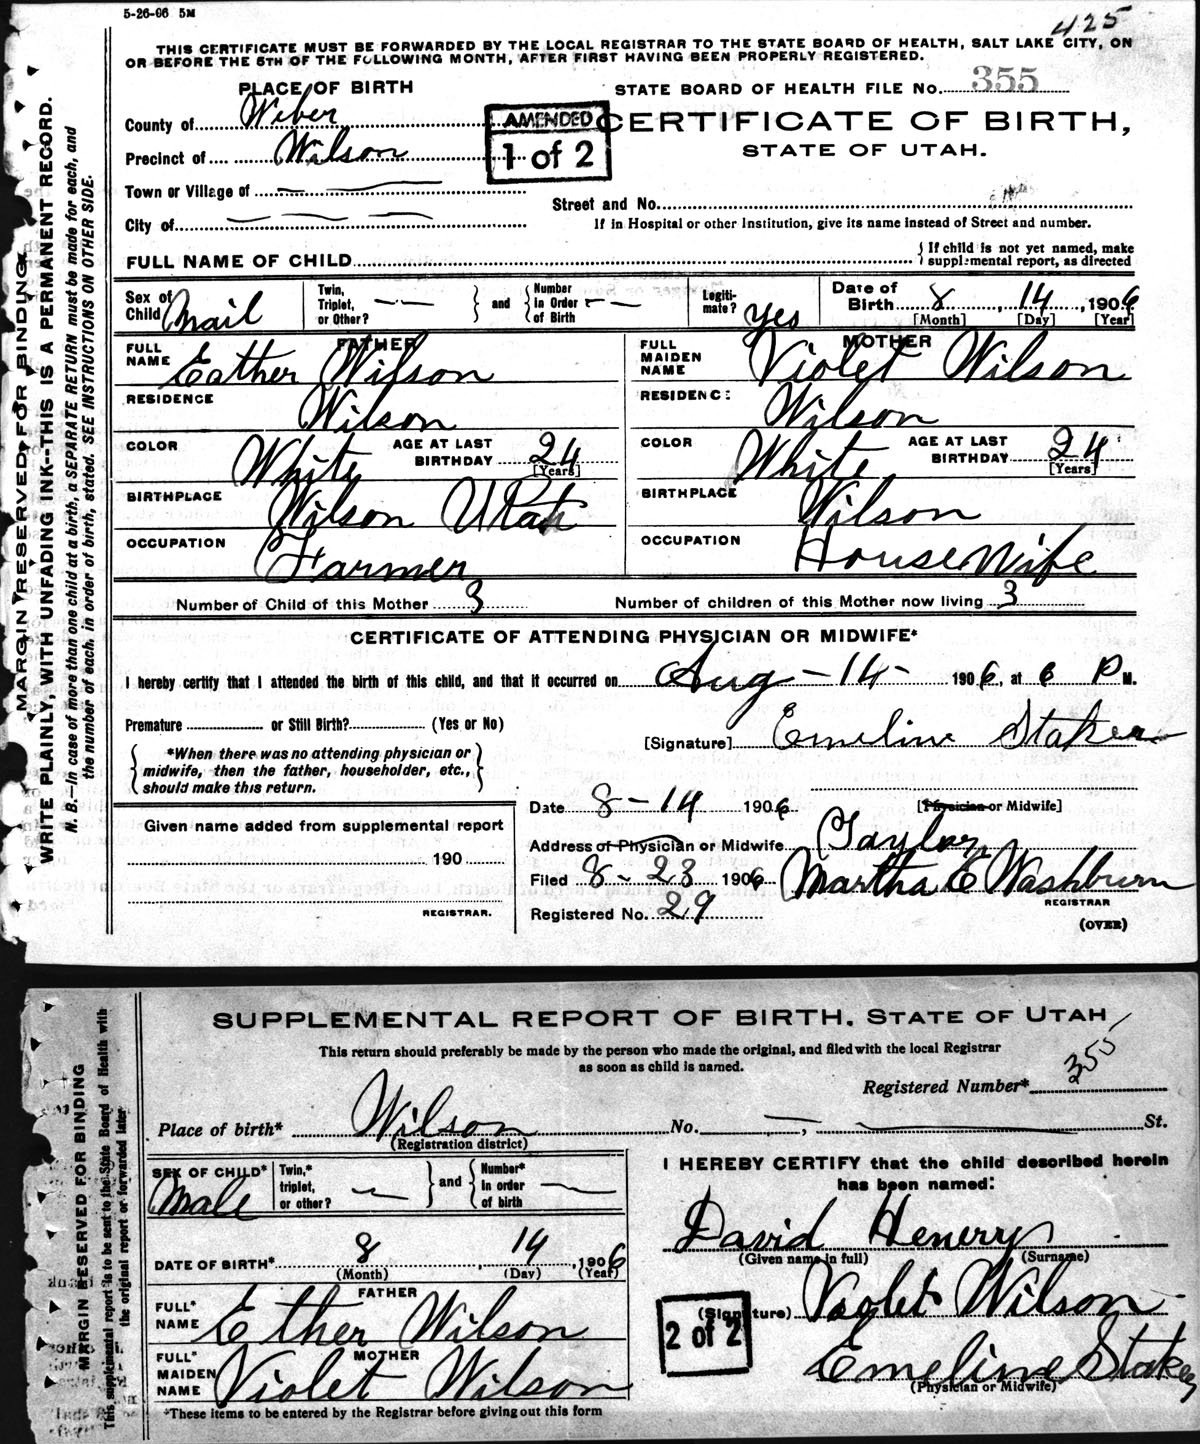 5-26-06 5M
425
THIS CERTIFICATE MUST BE FORWARDED BY THE LOCAL REGISTRAR TO THE STATE BOARD OF HEALTH, SALT LAKE CITY, ON
OR BEFORE THE 5TH OF THE FOLLOWING MONTH, AFTER FIRST HAVING BEEN PROPERLY REGISTERED.
MARGIN RESERVED FOR BINDING.
WRITE PLAINLY, WITH UNFADING INK--THIS IS A PERMANENT RECORD.
N. B.—In case of more than one child at a birth, a SEPARATE RETURN must be made for each, and
the number of each, in order of birth, stated. SEE INSTRUCTIONS ON OTHER SIDE.
PLACE OF BIRTH
STATE BOARD OF HEALTH FILE No. 355
County of Weber
AMENDED
1 of 2
CERTIFICATE OF BIRTH,
STATE OF UTAH.
Precinct of Wilson
Town or Village of — —
Street and No.
City of — — — —
If in Hospital or other Institution, give its name instead of Street and number.
FULL NAME OF CHILD
{ If child is not yet named, make
supplemental report, as directed
Sex of Child Mail
Twin, Triplet, or Other? — —
} and {
Number in Order of Birth — —
Legiti-mate? Yes
Date of Birth 8, 14, 1906
[Month] [Day] [Year]
FATHER
FULL NAME Eather Wilson
MOTHER
FULL MAIDEN NAME Violet Wilson
RESIDENCE Wilson
RESIDENCE Wilson
COLOR White AGE AT LAST BIRTHDAY 24 [Years]
COLOR White AGE AT LAST BIRTHDAY 24 [Years]
BIRTHPLACE Wilson Utah
BIRTHPLACE Wilson
OCCUPATION Farmer
OCCUPATION House Wife
Number of Child of this Mother 3
Number of children of this Mother now living 3
CERTIFICATE OF ATTENDING PHYSICIAN OR MIDWIFE*
I hereby certify that I attended the birth of this child, and that it occurred on Aug - 14 - 1906, at 6 P M.
Premature or Still Birth? (Yes or No)
[Signature] Emeline Staker
{ *When there was no attending physician or
midwife, then the father, householder, etc.,
should make this return. }
Date 8-14 1906 [Physician or Midwife]
Given name added from supplemental report
190
REGISTRAR.
Address of Physician or Midwife Taylor
Filed 8-23 1906 Martha E Washburn
REGISTRAR
Registered No. 29
(OVER)
SUPPLEMENTAL REPORT OF BIRTH, STATE OF UTAH
This return should preferably be made by the person who made the original, and filed with the local Registrar
as soon as child is named.
Registered Number* 355
MARGIN RESERVED FOR BINDING
This supplemental report is to be sent to the State Board of Health with
the original report or forwarded later
Place of birth* Wilson No. —, — St.
(Registration district)
SEX OF CHILD* Male
Twin,* triplet, or other? —
} and {
Number* in order of birth —
I HEREBY CERTIFY that the child described herein
has been named:
David Henery
(Given name in full) (Surname)
DATE OF BIRTH* 8, 14, 1906
(Month) (Day) (Year)
FATHER
FULL* NAME Ether Wilson
(Signature) Violet Wilson
2 of 2
MOTHER
FULL* MAIDEN NAME Violet Wilson
Emeline Staker
(Physician or Midwife)
*These items to be entered by the Registrar before giving out this form